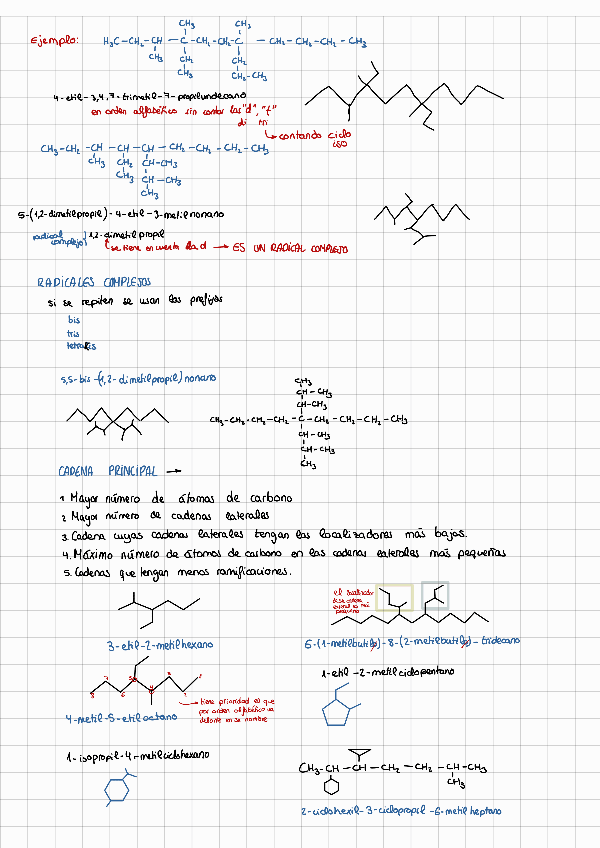 Ejemplo:
CH₃ CH₃
H₃C-CH₂-CH - C-CH₂-CH₂-C - CH₂-CH₂-CH₂-CH₃
CH₃ CH₂ CH₂
CH₃ CH₂-CH₃
4-etil-3,4,7-trimetil-7-propilundecano
en orden alfabético sin contar las "d", "t"
di tri
contando ciclo
iso
CH₃-CH₂-CH-CH-CH-CH₂-CH₂-CH₂-CH₃
CH₃ CH₂ CH-CH₃
CH₃ CH-CH₃
CH₃
5-(1,2-dimetilpropil)-4-etil-3-metilnonano
radical
complejo
1,2-dimetilpropil
se tiene en cuenta la d → ES UN RADICAL COMPLEJO
RADICALES COMPLEJOS
si se repiten se usan los prefijos
bis
tris
tetrakis
5,5-bis-(1,2-dimetilpropil)nonano
CH₃
CH-CH₃
CH-CH₃
CH₃-CH₂-CH₂-CH₂-C-CH₂-CH₂-CH₂-CH₃
CH-CH₃
CH-CH₃
CH₃
CADENA PRINCIPAL →
1. Mayor número de átomos de carbono
2. Mayor número de cadenas laterales
3. Cadena cuyas cadenas laterales tengan los localizadores más bajos.
4. Máximo número de átomos de carbono en las cadenas laterales más pequeñas
5. Cadenas que tengan menos ramificaciones.
el localizador
3-etil-2-metilhexano
6-(1-metilbutilo)-8-(2-metilbutilo)-tridecano
8 7 6 5 4 3 2 1
tiene prioridad el que
por orden alfabético va
delante en se nombre
4-metil-5-etiloctano
1-etil-2-metilciclopentano
1-isopropil-4-metilciclohexano
CH₃-CH-CH-CH₂-CH₂-CH-CH₃
CH₃
2-ciclohexil-3-ciclopropil-6-metilheptano